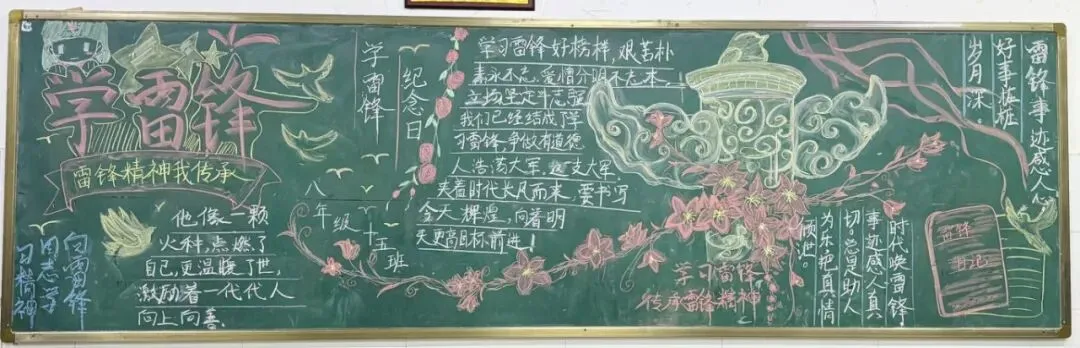 学雷锋
雷锋精神我传承
他像一颗
火种,点燃了
自己,更温暖了世,
激励着一代代人
向上向善.
向雷锋
同志学
习精神
学雷锋
纪念日
八年级十五班
学习雷锋好榜样,艰苦朴
素永不忘,爱憎分明不忘本,
立场坚定斗志强
我们已经结成了学
习雷锋,争做有道德
人浩荡大军,这支大军
夹着时代长风而来,要书写
今天辉煌,向着明
天更高目标前进!
学习雷锋
传承雷锋精神
雷锋事迹感人心
好事桩桩
岁月深.
时代唤雷锋,
事迹感人真
切.总是助人
为乐把真情
倾世.
雷锋
日记